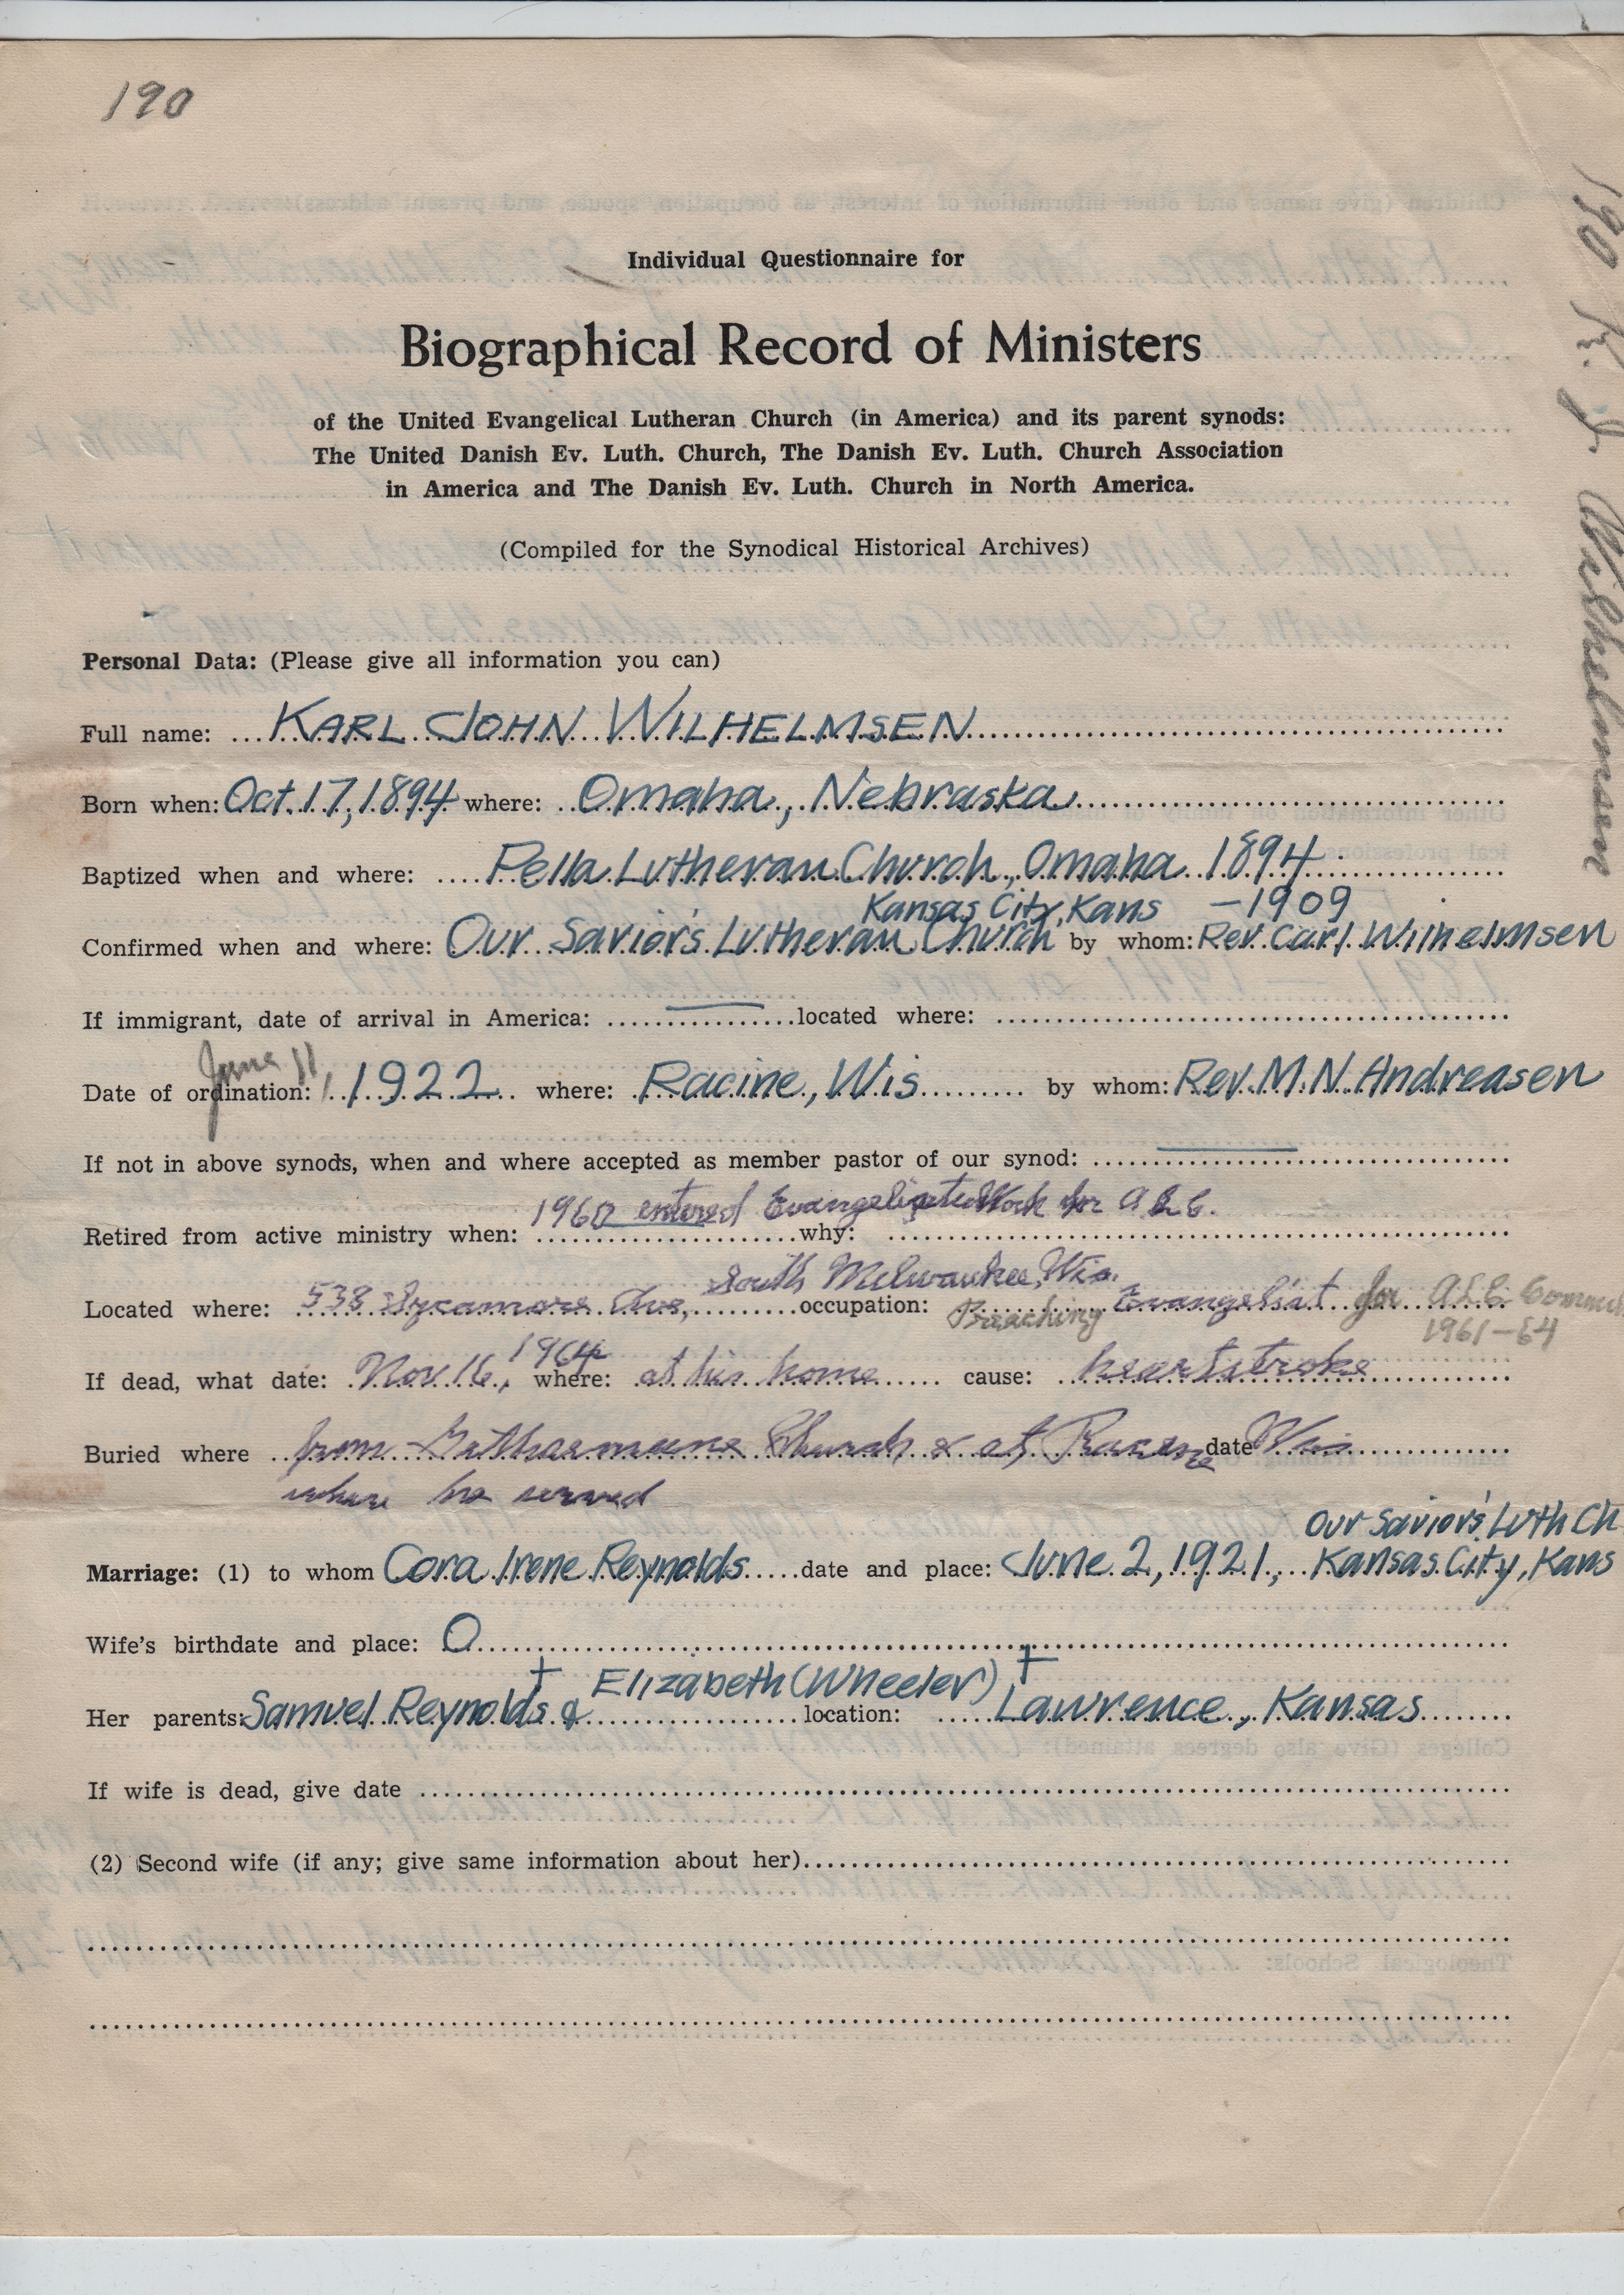 190
190 K. J. Wilhelmsen
Individual Questionnaire for
Biographical Record of Ministers
of the United Evangelical Lutheran Church (in America) and its parent synods:
The United Danish Ev. Luth. Church, The Danish Ev. Luth. Church Association
in America and The Danish Ev. Luth. Church in North America.
(Compiled for the Synodical Historical Archives)
Personal Data: (Please give all information you can)
Full name: KARL JOHN WILHELMSEN
Born when: Oct. 17, 1894 where: Omaha, Nebraska
Baptized when and where: Pella Lutheran Church, Omaha 1894
Kansas City, Kans - 1909
Confirmed when and where: Our Savior's Lutheran Church by whom: Rev. Carl Wilhelmsen
If immigrant, date of arrival in America: located where:
June 11,
Date of ordination: 1922 where: Racine, Wis by whom: Rev. M. N. Andreasen
If not in above synods, when and where accepted as member pastor of our synod:
1960 entered Work for A L C.
Retired from active ministry when: why:
South Milwaukee, Wis.
Located where: 538 Sycamore Ave, occupation: Preaching Evangelist for ALC
1961-64
1964
If dead, what date: Nov. 16, where: at his home cause: heart stroke
Buried where from Church & at Racine date Wis
where he served
Our Savior's Luth Ch
Marriage: (1) to whom Cora Irene Reynolds date and place: June 2, 1921, Kansas City, Kans
Wife's birthdate and place: O
Elizabeth (Wheeler)
Her parents: Samuel Reynolds & location: Lawrence, Kansas
If wife is dead, give date
(2) Second wife (if any; give same information about her)